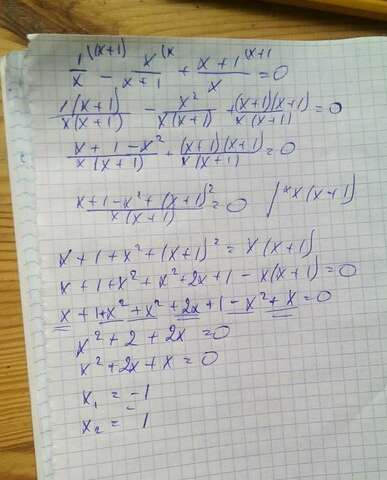 1/x ^((x+1) - x/(x+1) ^(x + (x+1)/x ^(x+1 = 0
1(x+1)/x(x+1) - x²/x(x+1) + (x+1)(x+1)/x(x+1) = 0
x+1-x²/x(x+1) + (x+1)(x+1)/x(x+1) = 0
x+1-x²+(x+1)²/x(x+1) = 0 /* x(x+1)
x+1+x²+(x+1)² = x(x+1)
x+1+x²+x²+2x+1-x(x+1)=0
x+1+x²+x²+2x+1-x²+x=0
x²+2+2x=0
x²+2x+x=0
x₁ = -1
x₂ = 1